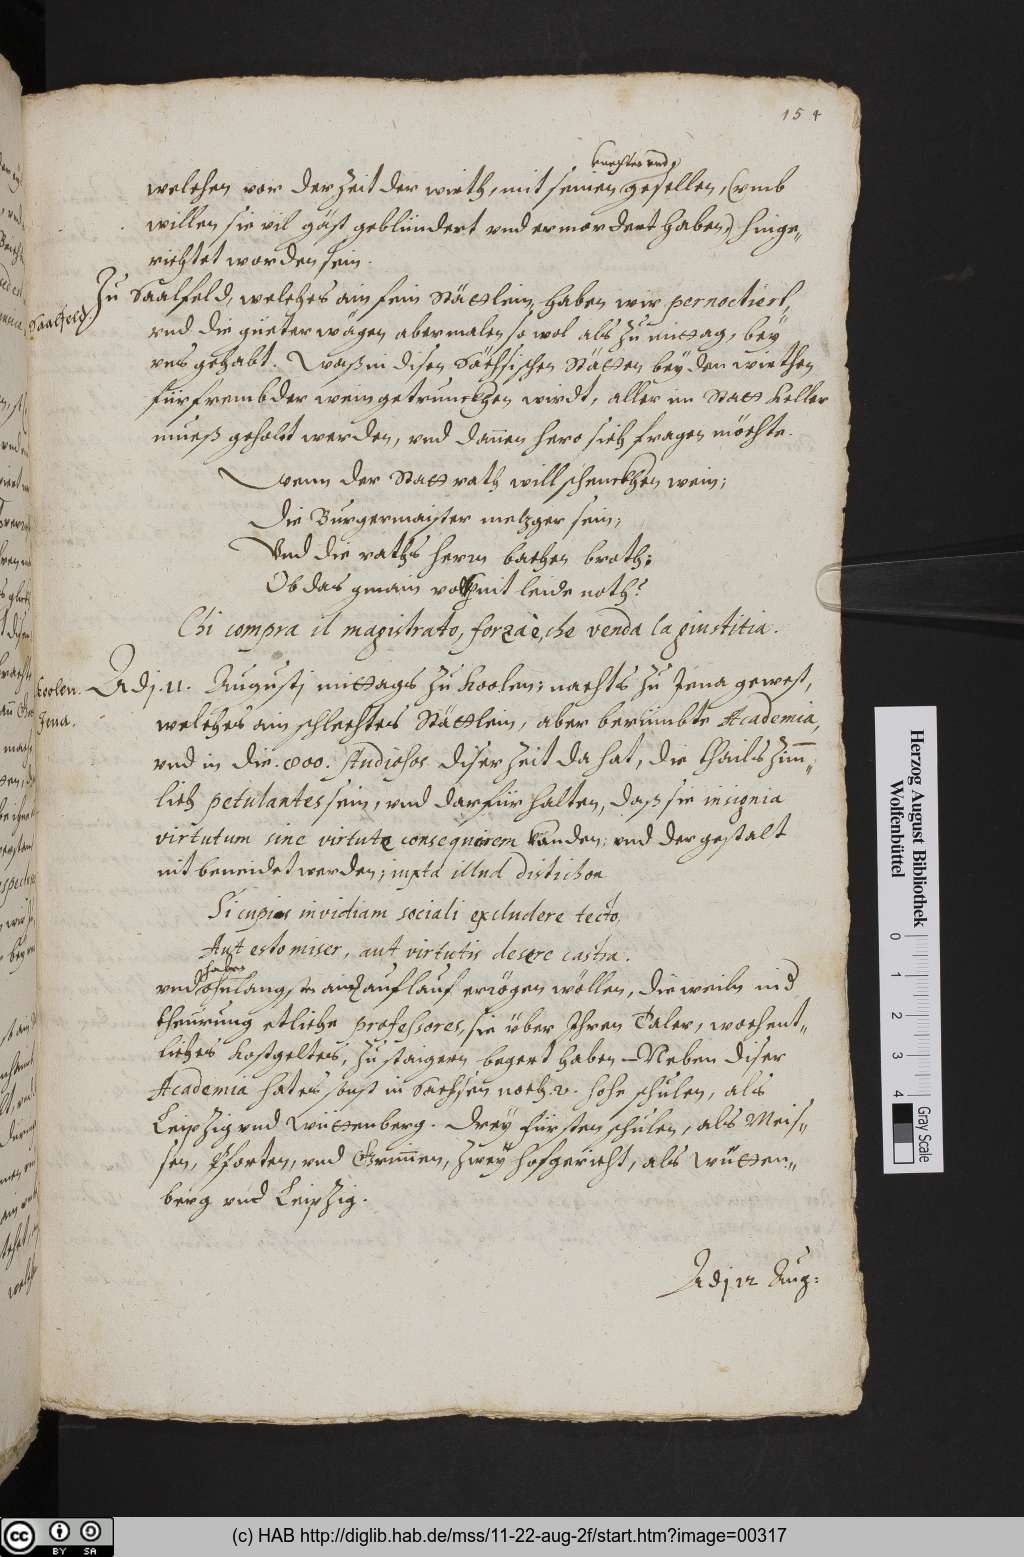 154
knechten vnd
welchen vor der Zeit der wirth, mit seinen gesellen, (vmb
willen sie vil gäst geblündert vnd ermordert haben,) hinge„
richtet worden sein.
Saalfeld.
Zu Saalfeld, welches ain fein Stättlein, haben wir pernoctiert,
vnd die güeter wägen abermalen so wol als zu mittag, bey
vns gehabt. Waß in disen Sächsischen Stätten bey den wirthen
für frembder wein getrunckhen wirdt, aller im Statt Keller
mueß geholet werden, vnd dannen hero sich fragen möchte.
Wenn der Statt rath will schenckhen wein;
Die Burgermaister metzger sein,
Vnd die raths herrn bachen broth;
Ob das gmain volkh nit leide noth?
Chi compra il magistrato, forza è, che venda la giustitia.
Koolen.
Jena.
Adj. 11. Augustj mittags zu Koolen; nachts zu Jena gewest,
welches ain schlechtes Stättlein, aber berümbte Academia,
vnd in die 800. studiosos diser Zeit da hat, die thails zim„
lich petulantes sein, vnd darfür halten, daß sie insignia
virtutum sine virtute consequirem könden; vnd dergestalt
nit beneidet werden; iuxta illud distichon
Si cupias invidiam sociali excludere tecto,
Aut esto miser, aut virtutis desere castra.
haben
vnd ohnlangst ain auflauf erzögen wöllen, die weiln in d
theurung etliche professores, sie über Ihren Taler, wochent„
liches Kostgeltes, zu staigern begert haben. Neben diser
Academia hat es sonst in Sachsen noch 2. hohe schulen, als
Leipzig vnd Wüttenberg. Drey Fürsten schulen, als Meis„
sen, Pforten, vnd Grimmen, zwey hofgericht, als Wütten„
berg vnd Leipzig.
Adj 12 Aug:
Herzog August Bibliothek
Wolfenbüttel
0 1 2 3 4
Gray Scale
cc BY SA
(c) HAB http://diglib.hab.de/mss/11-22-aug-2f/start.htm?image=00317